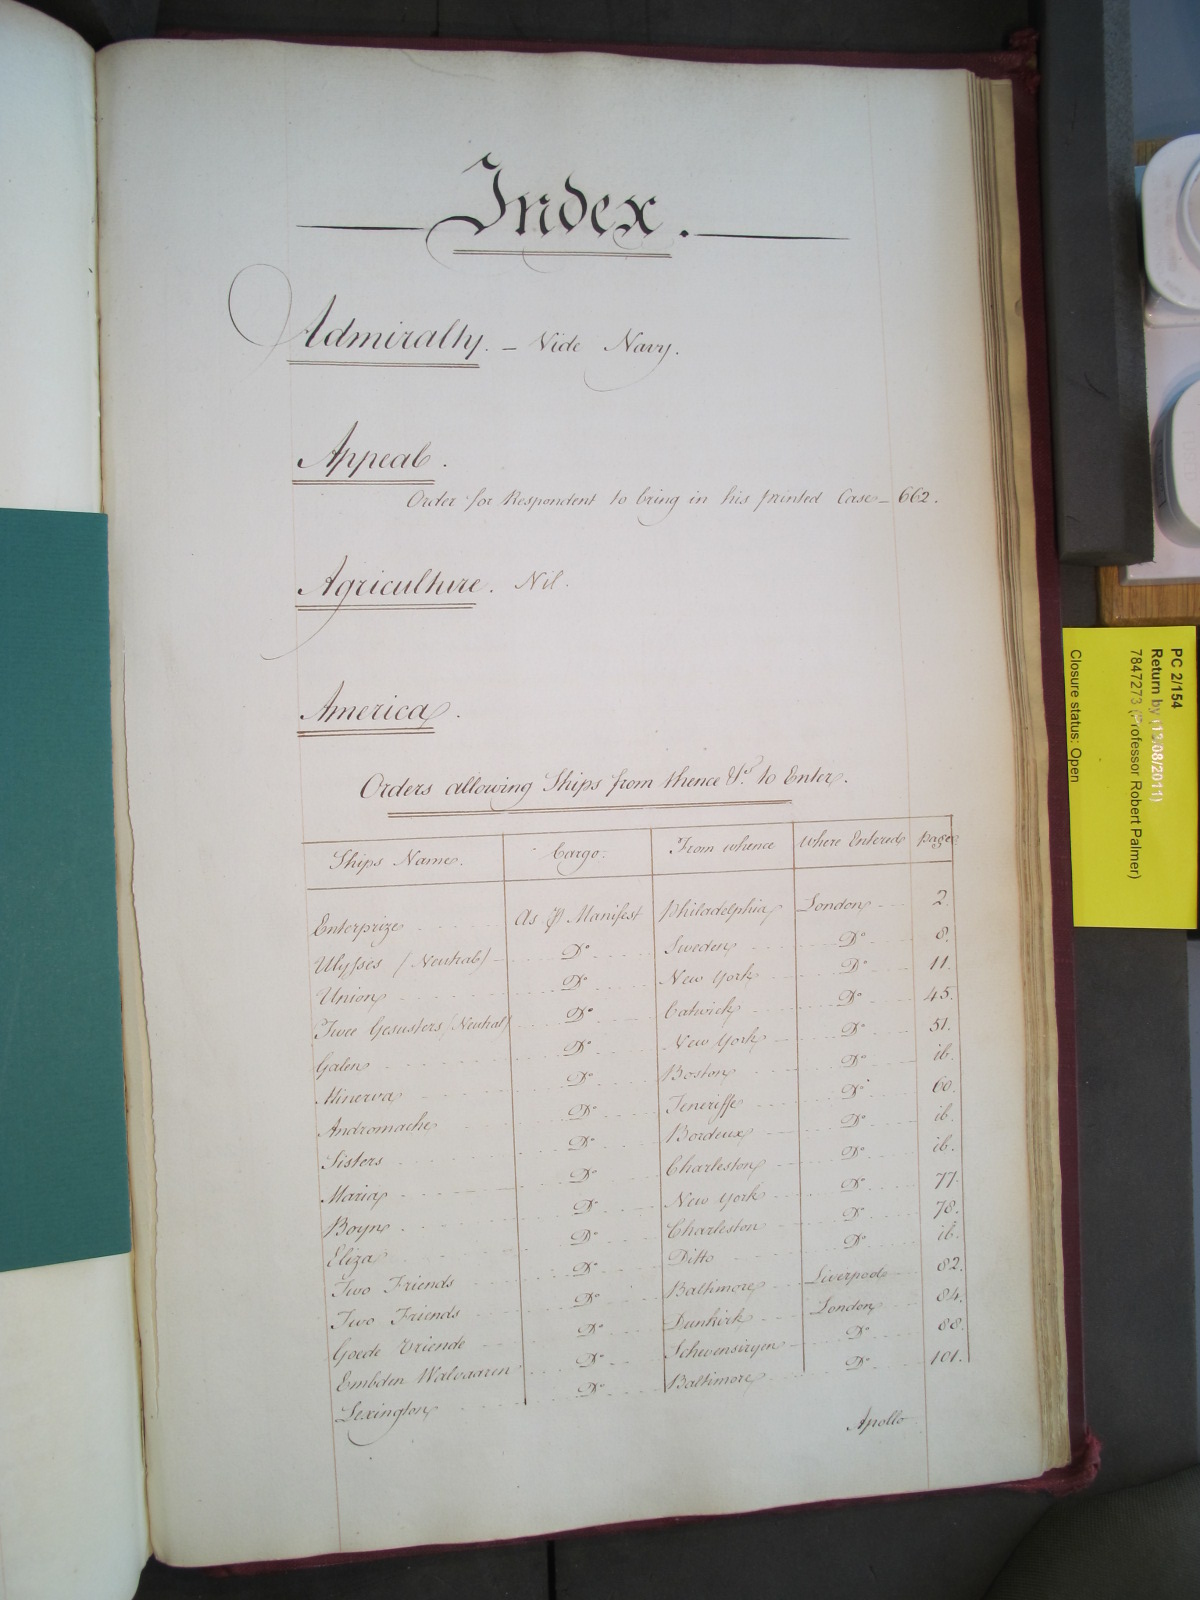 Index.
Admiralty. – Vide Navy.
Appeal.
Order for Respondent to bring in his printed Case – 662.
Agriculture. Nil.
America.
Orders allowing Ships from thence &c. to Enter.
Ships Name. Cargo. From whence Where Entered Page
Enterprize As ⅌ Manifest Philadelphia London 2.
Ulysses (Neutral) Do Sweden Do 8.
Union Do New York Do 11.
Twee Gesusters (Neutral) Do Catwick Do 45.
Galen Do New York Do 51.
Minerva Do Boston Do ib.
Andromache Do Teneriffe Do 60.
Sisters Do Bordeux Do ib.
Maria Do Charleston Do ib.
Boyne Do New York Do 77.
Eliza Do Charleston Do 78.
Two Friends Do Ditto Do ib.
Two Friends Do Baltimore Liverpool 82.
Goede Vriende Do Dunkirk London 84.
Embden Walvaaren Do Do 88.
Lexington Do Baltimore Do 101.
Apollo
PC 2/154
Return by (13/08/2011)
7847273 (Professor Robert Palmer)
Closure status: Open